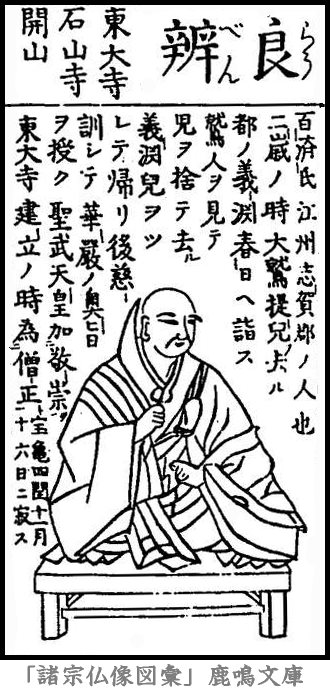 良辨
らう
べん
東大寺
石山寺
開山
百濟氏江州志賀郡ノ人也
二歳ノ時大鷲提兒去ル
都ノ義淵春日ヘ詣ス
鷲人ヲ見テ
児ヲ捨テ去ル
義淵兒ヲツ
レテ帰リ後慈
訓シテ華嚴ノ奥旨
ヲ授ク聖武天皇加敬崇ヲ
東大寺建立ノ時為僧正宝亀四閏十一月
十六日ニ寂ス
「諸宗仏像図彙」鹿鳴文庫